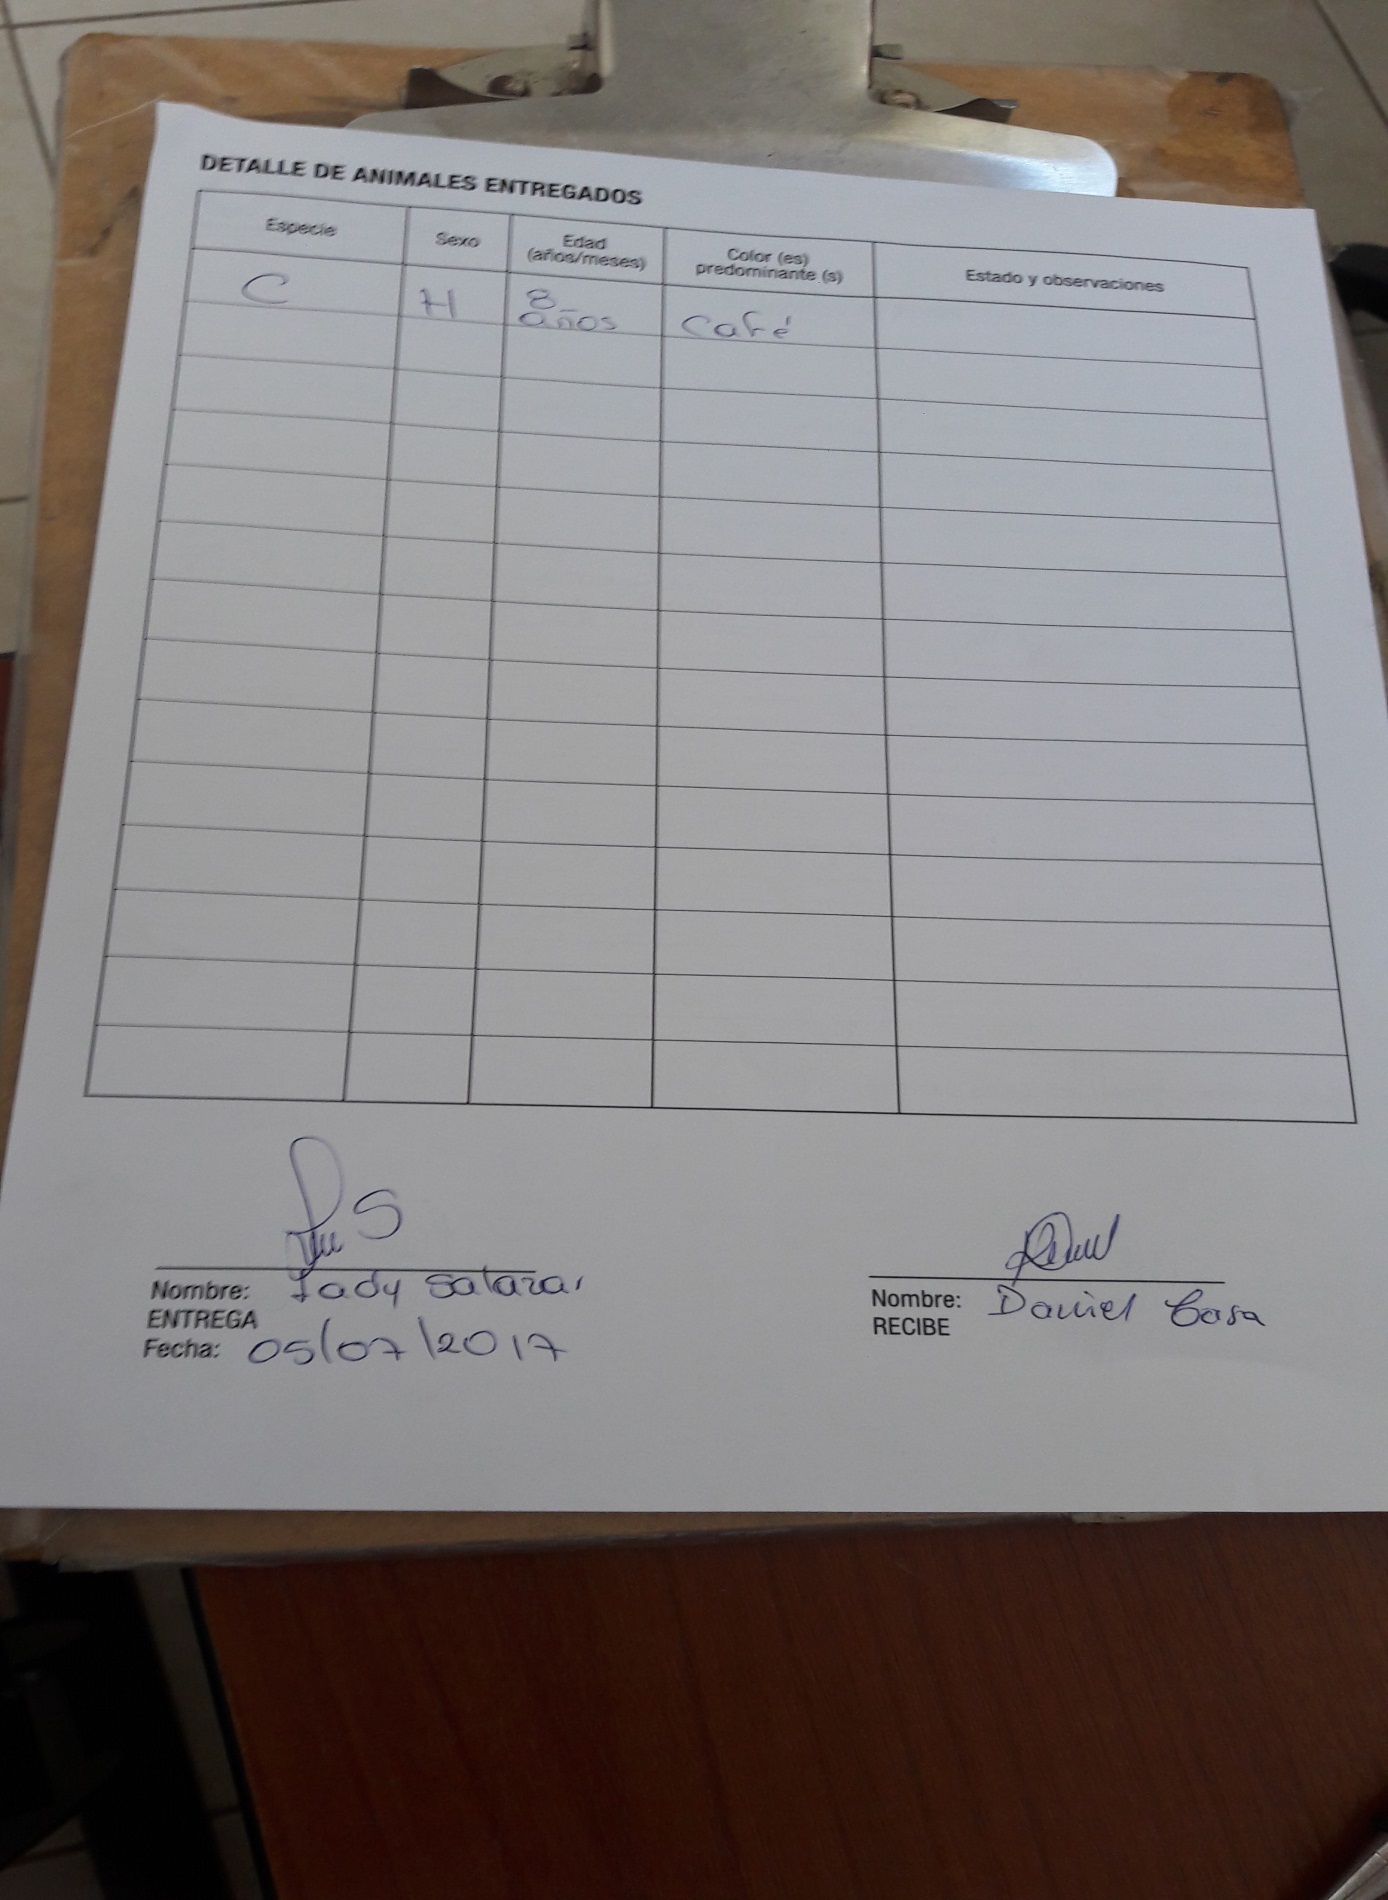 DETALLE DE ANIMALES ENTREGADOS
Especie Sexo Edad (años/meses) Color (es) predominante (s) Estado y observaciones
C H 8 años Café
Nombre: Lady Salazar
ENTREGA
Fecha: 05/07/2017
Nombre: Daniel Casa
RECIBE